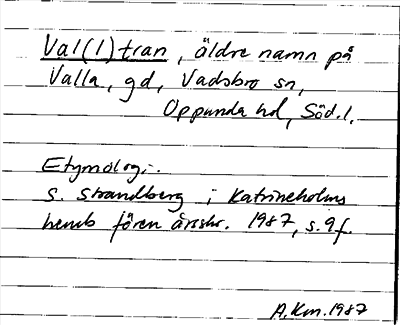 Val(l)tran, äldre namn på
Valla, gd, Vadsbro sn,
Oppunda hd, Söd.l.
Etymologi.
S. Strandberg i Katrineholms
hemb fören årsskr. 1987, s. 9 f.
A.Km. 1987